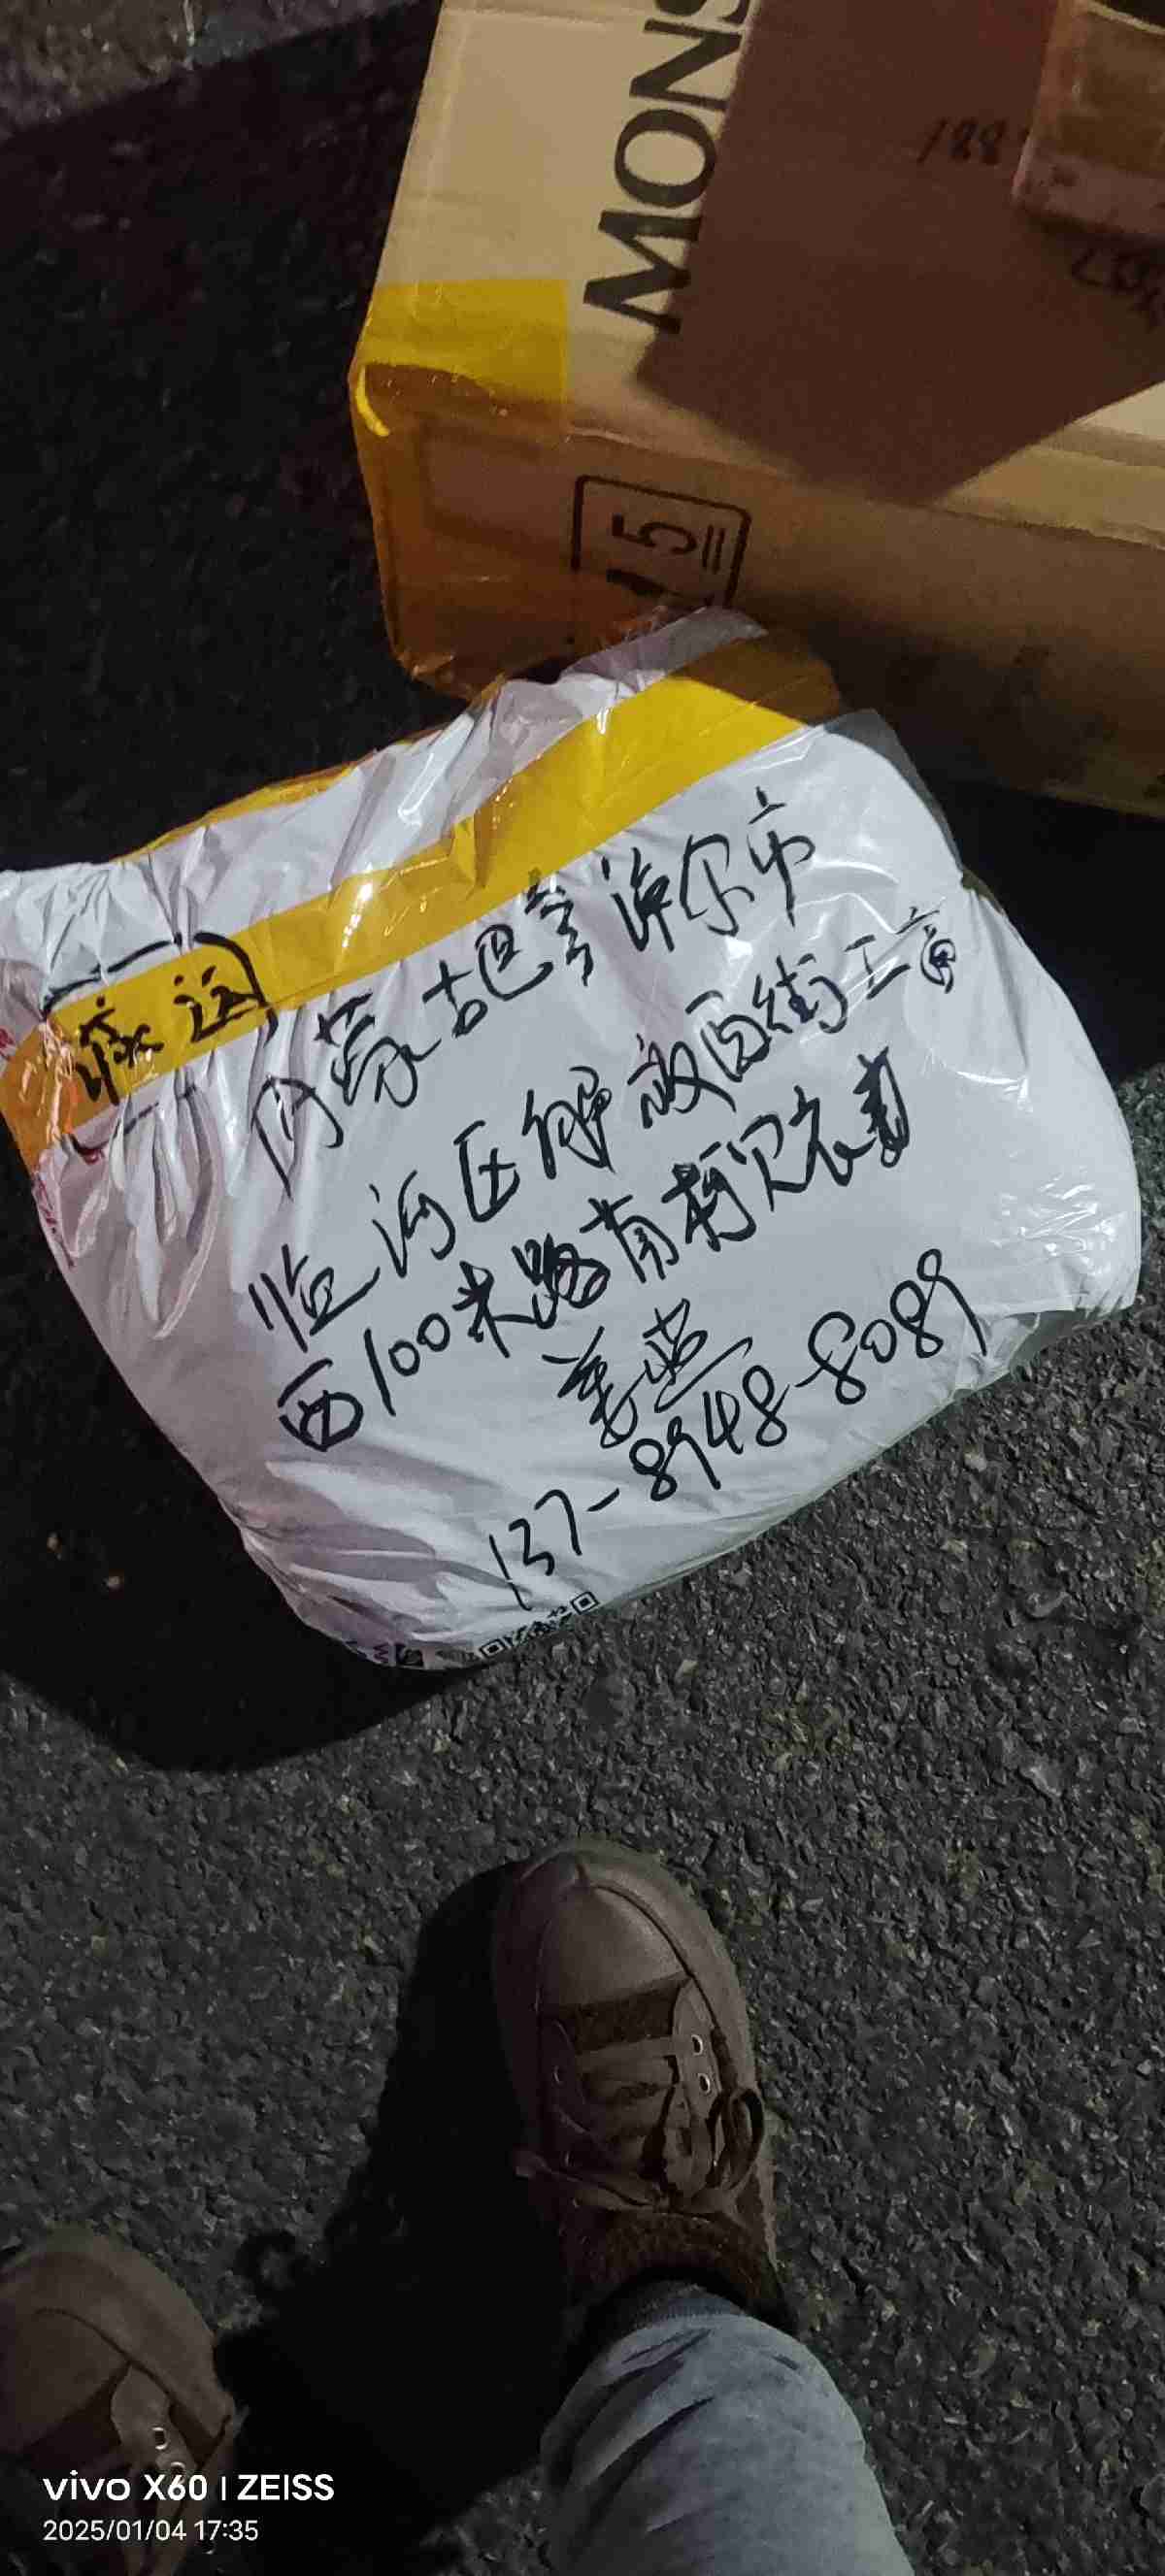 MONS
188
15
内蒙古巴彦淖尔市
临河区解放西街工商
西100米路南
姜燕
137-8948-8089
vivo X60 | ZEISS
2025/01/04 17:35